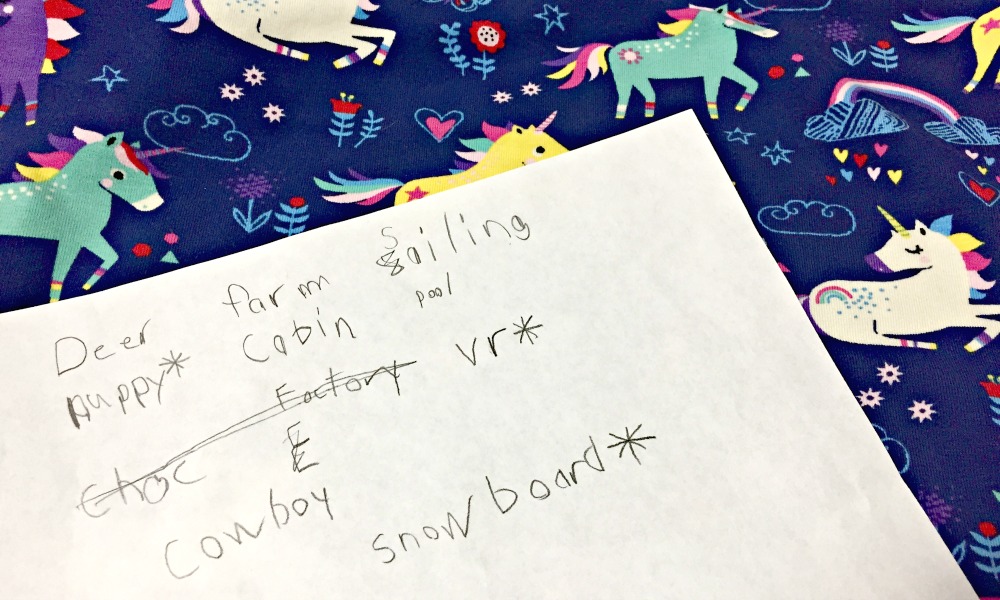 Deer farm Sailing
puppy* Cabin pool
Choc Factory vr*
E
Cowboy snowboard*